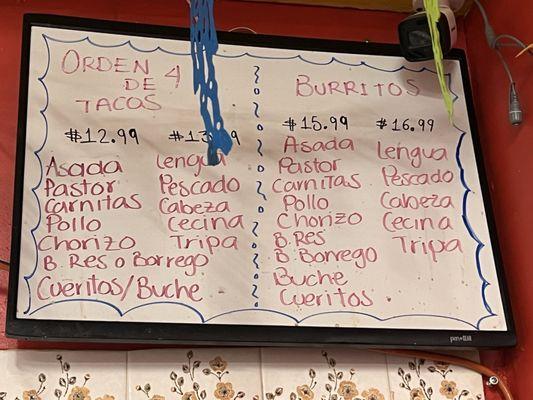 ORDEN 4
DE
TACOS
$12.99
Asada
Pastor
Carnitas
Pollo
Chorizo
B. Res o Borrego
Cueritos/Buche
Lengua
Pescado
Cabeza
Cecina
Tripa
BURRITOS
$15.99
Asada
Pastor
Carnitas
Pollo
Chorizo
B. Res
B. Borrego
Buche
Cueritos
$16.99
Lengua
Pescado
Cabeza
Cecina
Tripa